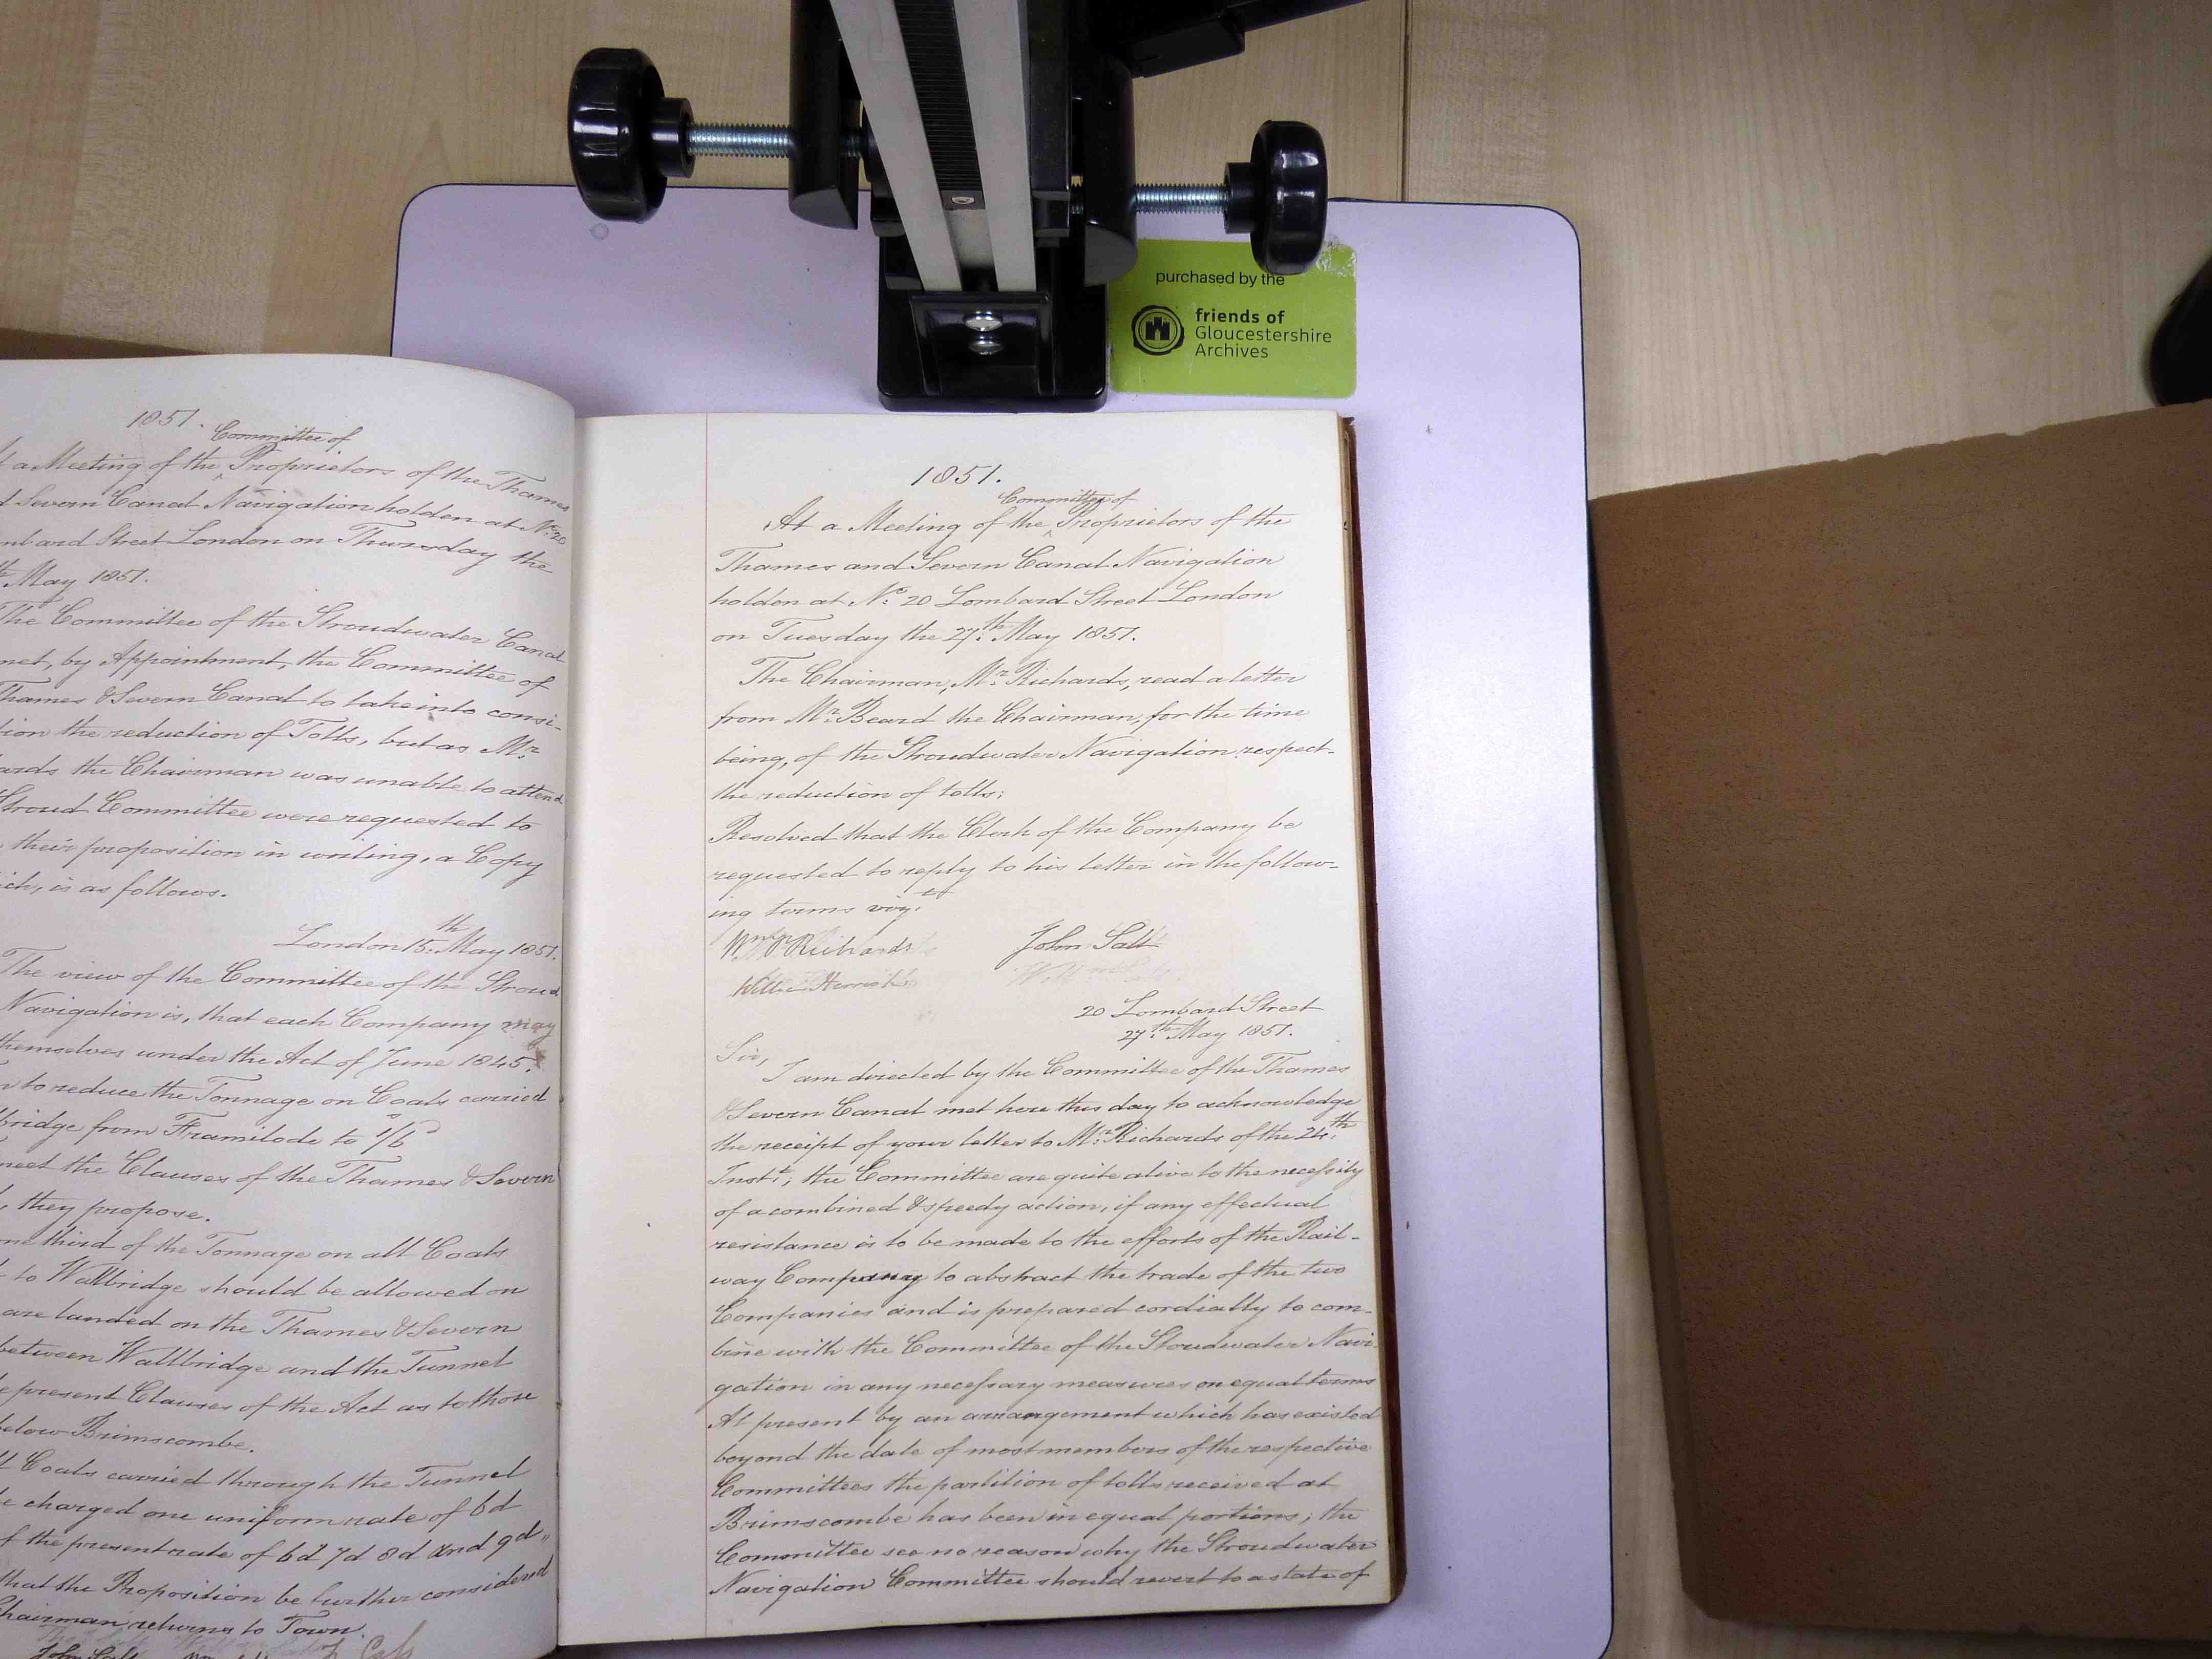 purchased by the
friends of
Gloucestershire
Archives
1851.
Committee of
a Meeting of the Proprietors of the Thames
Severn Canal Navigation holden at No. 20
Street London on Thursday the
May 1851.
The Committee of the Stroudwater Canal
met, by Appointment, the Committee of
Thames & Severn Canal to take into consi-
the reduction of Tolls, but as Mr.
the Chairman was unable to attend
Stroud Committee were requested to
their proposition in writing, a Copy
is as follows.
London 15th May 1851.
The view of the Committee of the Stroud
Navigation is, that each Company may
themselves under the Act of June 1845.
to reduce the Tonnage on Coals carried
from Framilode to 1/6
meet the Clauses of the Thames & Severn
they propose.
third of the Tonnage on all Coals
to Wallbridge should be allowed on
are landed on the Thames & Severn
between Wallbridge and the Tunnel
present Clauses of the Act as to those
below Brimscombe.
Coals carried through the Tunnel
charged one uniform rate of 6d
the present rate of 6d 7d 8d and 9d
that the Proposition be further considered
Chairman returns to Town.
John Salt
1851.
Committee of
At a Meeting of the Proprietors of the
Thames and Severn Canal Navigation
holden at No. 20 Lombard Street London
on Tuesday the 27th May 1851.
The Chairman, Mr. Richards, read a letter
from Mr. Beard the Chairman, for the time
being, of the Stroudwater Navigation respect-
the reduction of tolls;
Resolved that the Clerk of the Company be
requested to reply to his letter in the follow-
ing terms viz.
Wm. P Richards John Salt
20 Lombard Street
27th May 1851.
Sir,
I am directed by the Committee of the Thames
& Severn Canal met here this day to acknowledge
the receipt of your letter to Mr. Richards of the 24th
Inst.; the Committee are quite alive to the necessity
of a combined & speedy action, if any effectual
resistance is to be made to the efforts of the Rail-
way Company to abstract the trade of the two
Companies and is prepared cordially to com-
bine with the Committee of the Stroudwater Navi-
gation in any necessary measures on equal terms
At present by an arrangement which has existed
beyond the date of most members of the respective
Committees the partition of tolls received at
Brimscombe has been in equal portions; the
Committee see no reason why the Stroudwater
Navigation Committee should revert to a state of